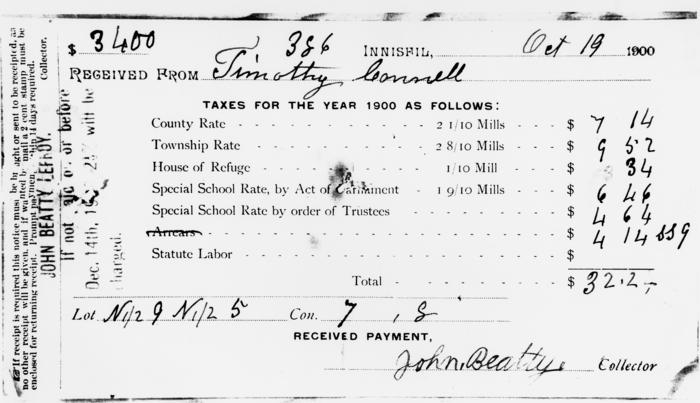 $ 3400 386 INNISFIL, Oct 19 1900
RECEIVED FROM Timothy Connell
TAXES FOR THE YEAR 1900 AS FOLLOWS:
County Rate - - - - 2 1/10 Mills - - $ 7 14
Township Rate - - - - 2 8/10 Mills - - $ 9 52
House of Refuge - - - 1/10 Mill - - $ 34
Special School Rate, by Act of Parliament 1 9/10 Mills - - $ 6 46
Special School Rate by order of Trustees - - - - $ 4 64
Arrears - - - - $ 4 14 SS 9
Statute Labor - - - - $
Total - - - - $ 32.2-
Lot N1/2 9 N1/2 5 Con. 7 , 8
RECEIVED PAYMENT,
John Beatty Collector
If receipt is required this notice must be brought or sent to be receipted, as
no other receipt will be given, and if wanted by mail a 2 cent stamp must be
enclosed for returning receipt. Prompt payment, within 14 days required.
JOHN BEATTY LEFROY. Collector.
If not paid on or before
Dec. 14th, will be
charged.